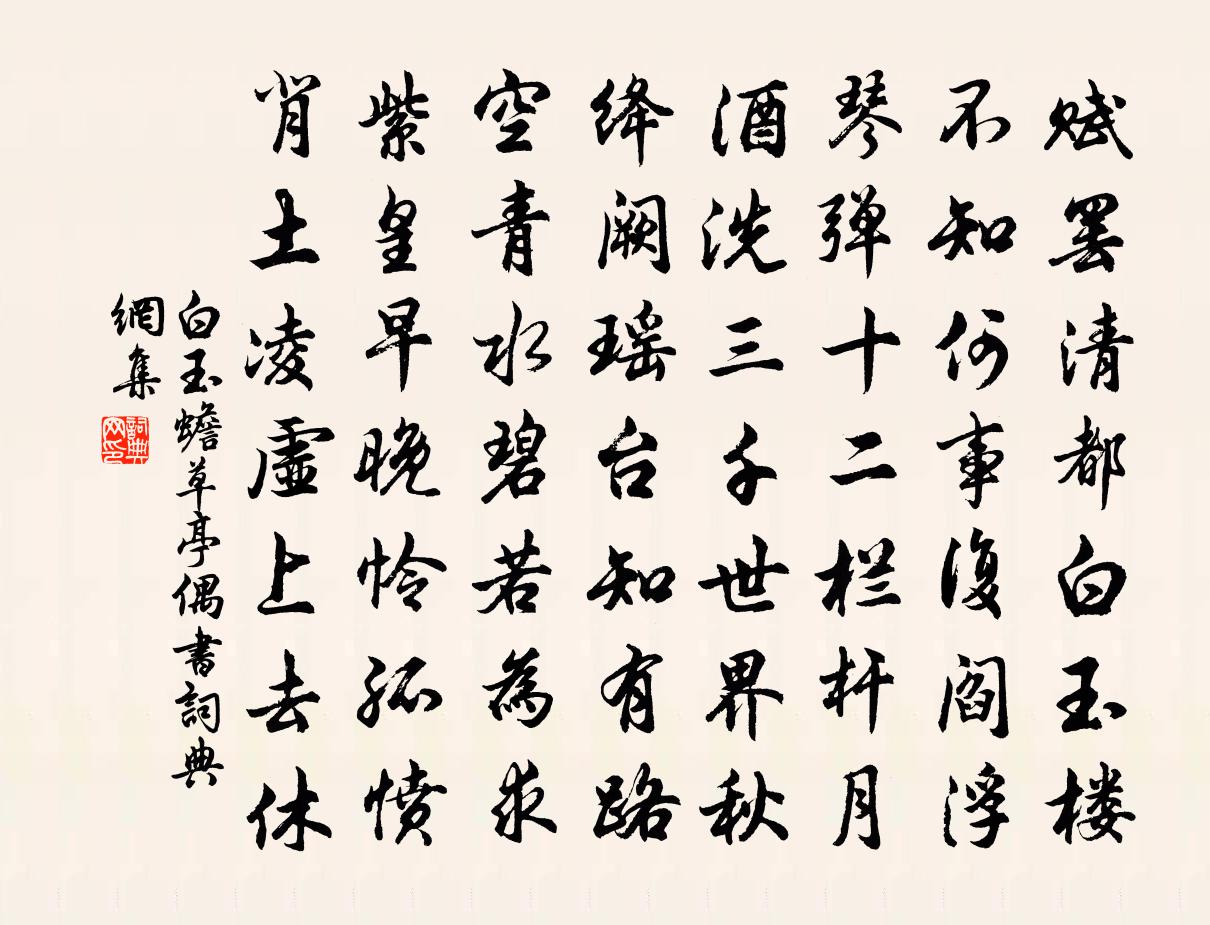 赋罢清都白玉楼
不知何事复阎浮
琴弹十二栏杆月
酒洗三千世界秋
绛阙瑶台知有路
空青水碧若为求
紫皇早晚怜孤愤
肯土凌虚上去休
白玉蟾草亭偶書詞典
網集
詞典
网印